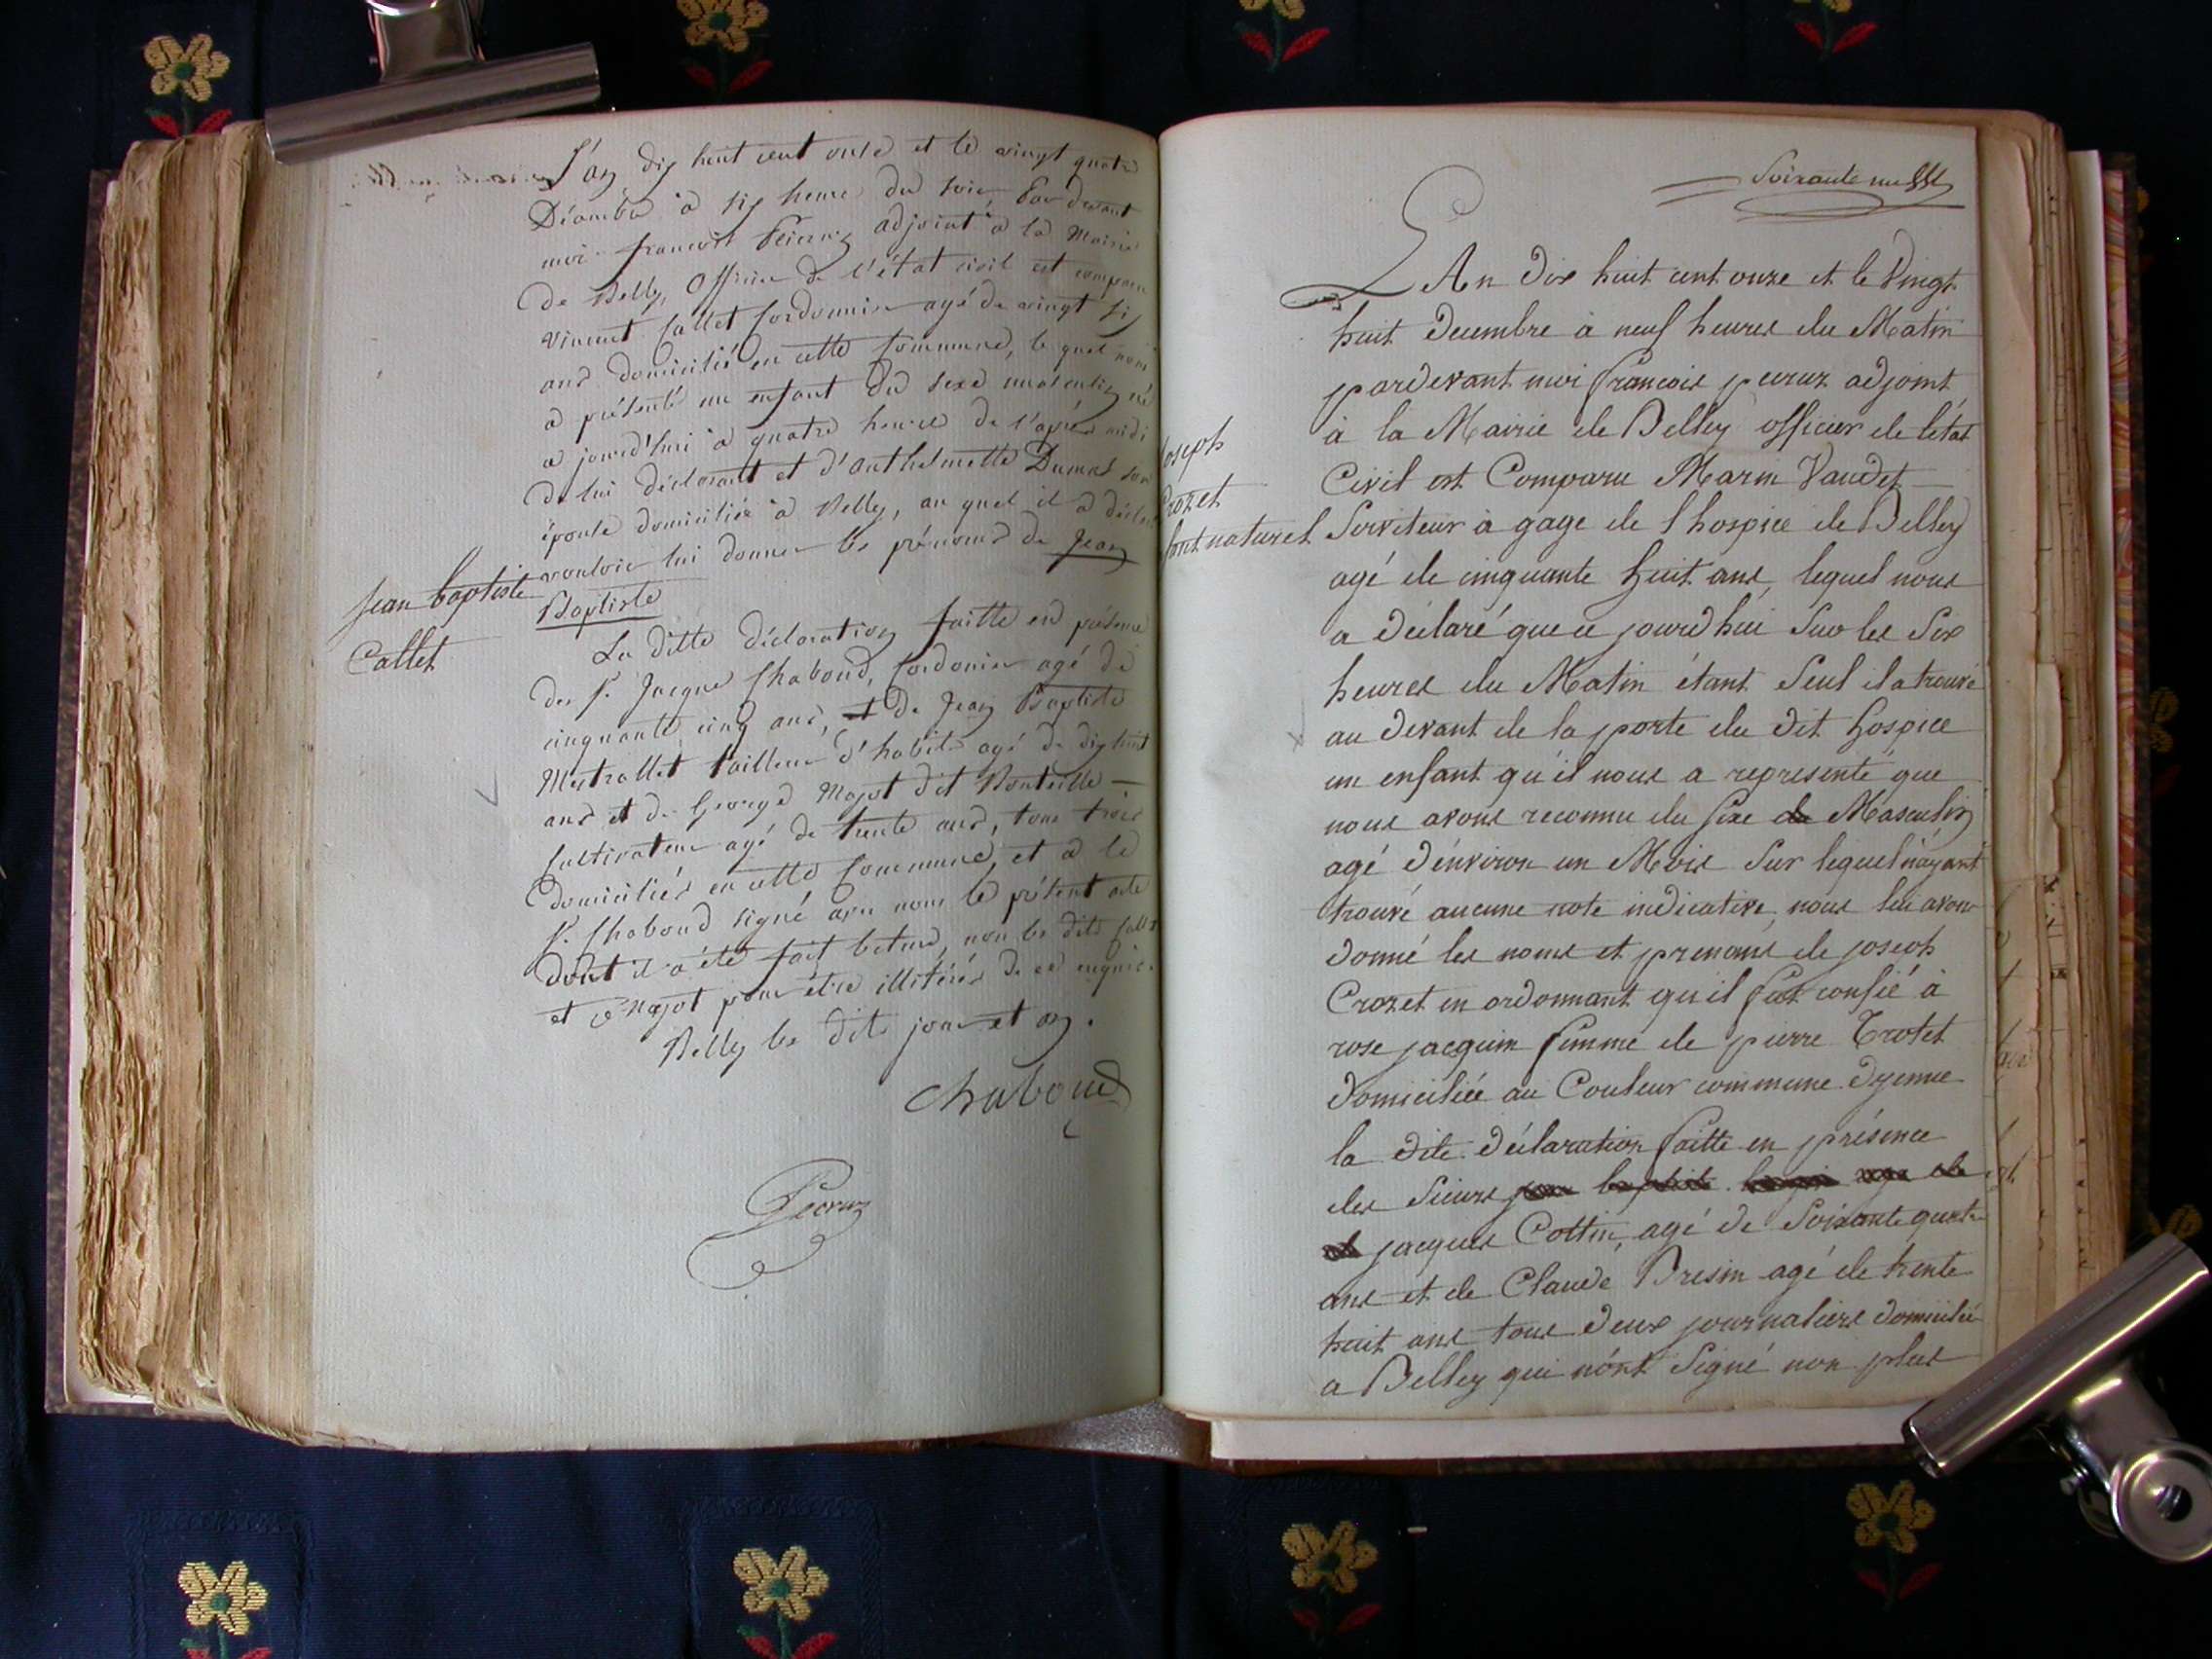 L'an dix huit cent onze et le vingt quatre
Décembre à six heure du soir Par devant
moi françois Peïeruz adjoint à la Mairie
de Belley, Officier de l'état civil est comparu
vincent Callet Cordonnier agé de vingt six
ans domicilié en cette Commune, le quel nous
a présenté un enfant du sexe masculin né
a jourd'hui à quatre heures de l'après midi
de lui déclarant et d'anthelmette Dumas son
épouse domiciliée à Belley, au quel il a déclaré
vouloir lui donner les prénoms de Jean
Baptiste
Jean baptiste
Callet
La ditte déclaration faitte en présence
des S. Jacque Chaboud, Cordonier agé de
cinquante cinq ans, et de Jean Baptiste
Mestrallet tailleur d'habits agé de dix huit
ans et de George Majot dit
Cultivateur agé de trente ans, tous trois
domiciliés en cette Commune, et a le
S. Chaboud signé avec nous le présent acte
dont il a été fait lecture, non les dits Callet
et Majot pour être illitérés de ce enquis.
Belley les dits jour et an.
chaboud
Peeruz
Soixante
L'An dix huit cent onze et le Vingt
huit decembre à neuf heures du Matin
pardevant moi francois peeruz adjoint
à la Mairie de Belley officier de létat
Civil est Comparu Marin Vaudet
Serviteur à gage de l hospice de Belley
agé de cinquante huit ans, lequel nous
a déclaré que ce jourd hui Sur les Six
heures du Matin étant Seul il a trouvé
au devant de la porte du dit hospice
un enfant qu'il nous a representé que
nous avons reconnu du Sexe de Masculin
agé d'environ un Mois Sur lequel n'ayant
trouvé aucune note indicative, nous lui avons
donné les noms et prenoms de joseph
Crozet en ordonnant qu'il fut confié à
rose jacquin femme de pierre Trotet
domiciliée au Couleur commune dyenne
la dite déclaration faitte en présence
des Sieurs
jacques Cottin, agé de Soixante quatre
ans et de Claude Bresin agé de trente
huit ans tous deux journaliers domicilié
a Belley qui n'ont Signé non plus
oseph
Crozet
fant naturel